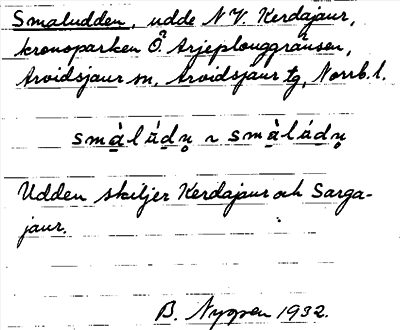 Smaludden, udde N V. Kerdajaur,
kronoparken Ö. Arjeplouggränsen,
Arvidsjaur sn, Arvidsjaur tg, Norrb. l.
smàládṇ ~ smàládṇ
Udden skiljer Kerdajaur och Sarga-
jaur.
B. Nygren 1932.